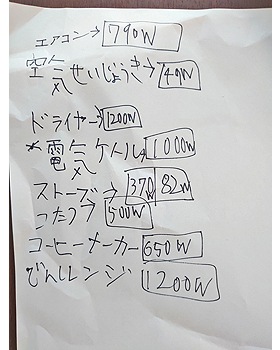 エアコン→790W
空気せいじょうき→49W
ドライヤー→1200W
*電気ケトル→1000W
ストーブ→370W 82W
こたつ→500W
コーヒーメーカー650W
でんしレンジ1200W